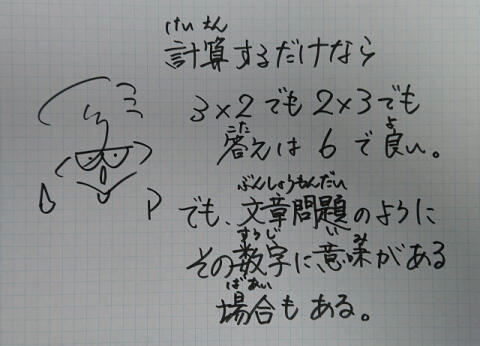 けいさん
計算するだけなら
3×2でも2×3でも
こた よ
答えは6で良い。
ぶんしょうもんだい
でも、文章問題のように
すうじ いみ
その数字に意味がある
ばあい
場合もある。